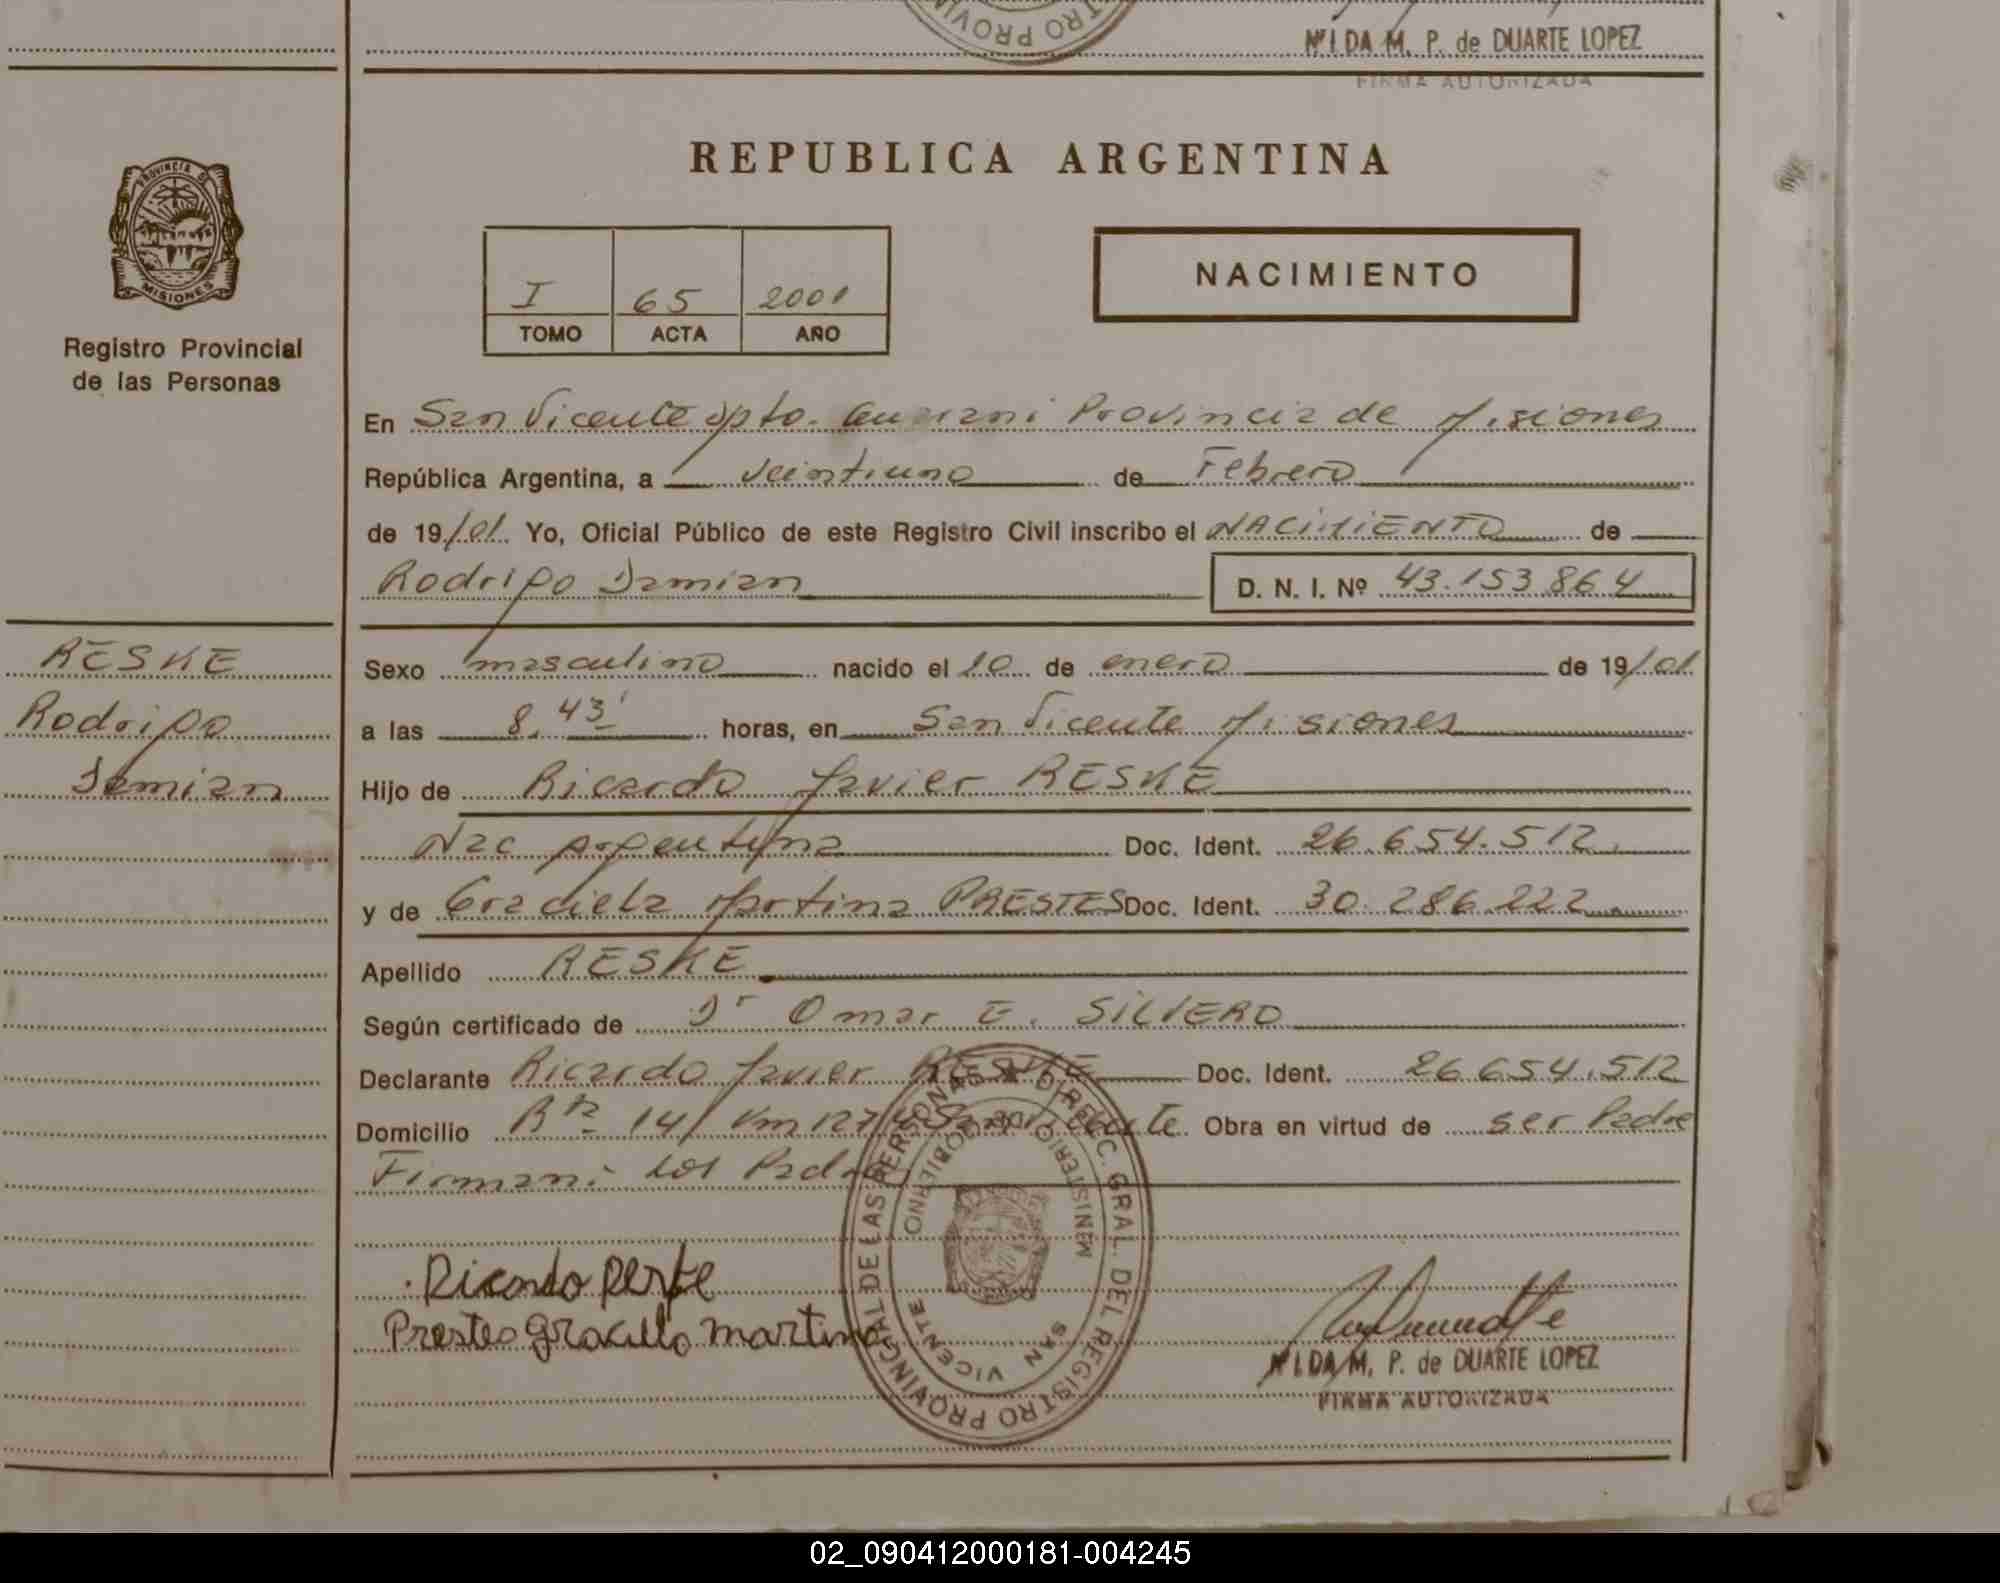 TRO PROVIN
NILDA M. P. de DUARTE LOPEZ
FIRMA AUTORIZADA
PROVINCIA DE
MISIONES
Registro Provincial
de las Personas
REPUBLICA ARGENTINA
I 65 2001
TOMO ACTA AÑO
NACIMIENTO
En San Vicente Dpto. Guarani Provincia de Misiones
República Argentina, a veintiuno de Febrero
de 19/01. Yo, Oficial Público de este Registro Civil inscribo el NACIMIENTO de
Rodrigo Damian D. N. I. Nº 43.153.864
RESKE
Rodrigo
Damian
Sexo masculino nacido el 20 de enero de 19/01
a las 8,43' horas, en San Vicente Misiones
Hijo de Ricardo Javier RESKE
Nac argentina Doc. Ident. 26.654.512
y de Graciela Martina PRESTES Doc. Ident. 30.286.222
Apellido RESKE
Según certificado de Dr Omar E. SILVERO
Declarante Ricardo Javier RESKE Doc. Ident. 26.654.512
Domicilio Rta 14/ Km 1274 San Vicente Obra en virtud de ser Padre
Firman: los Padres
Ricardo Reske
Prestes Graciela Martina
DIREC. GRAL. DEL REGISTRO PROVINCIAL DE LAS PERSONAS
MINISTERIO DE GOBIERNO
SAN VICENTE
NILDA M. P. de DUARTE LOPEZ
FIRMA AUTORIZADA
02_090412000181-004245